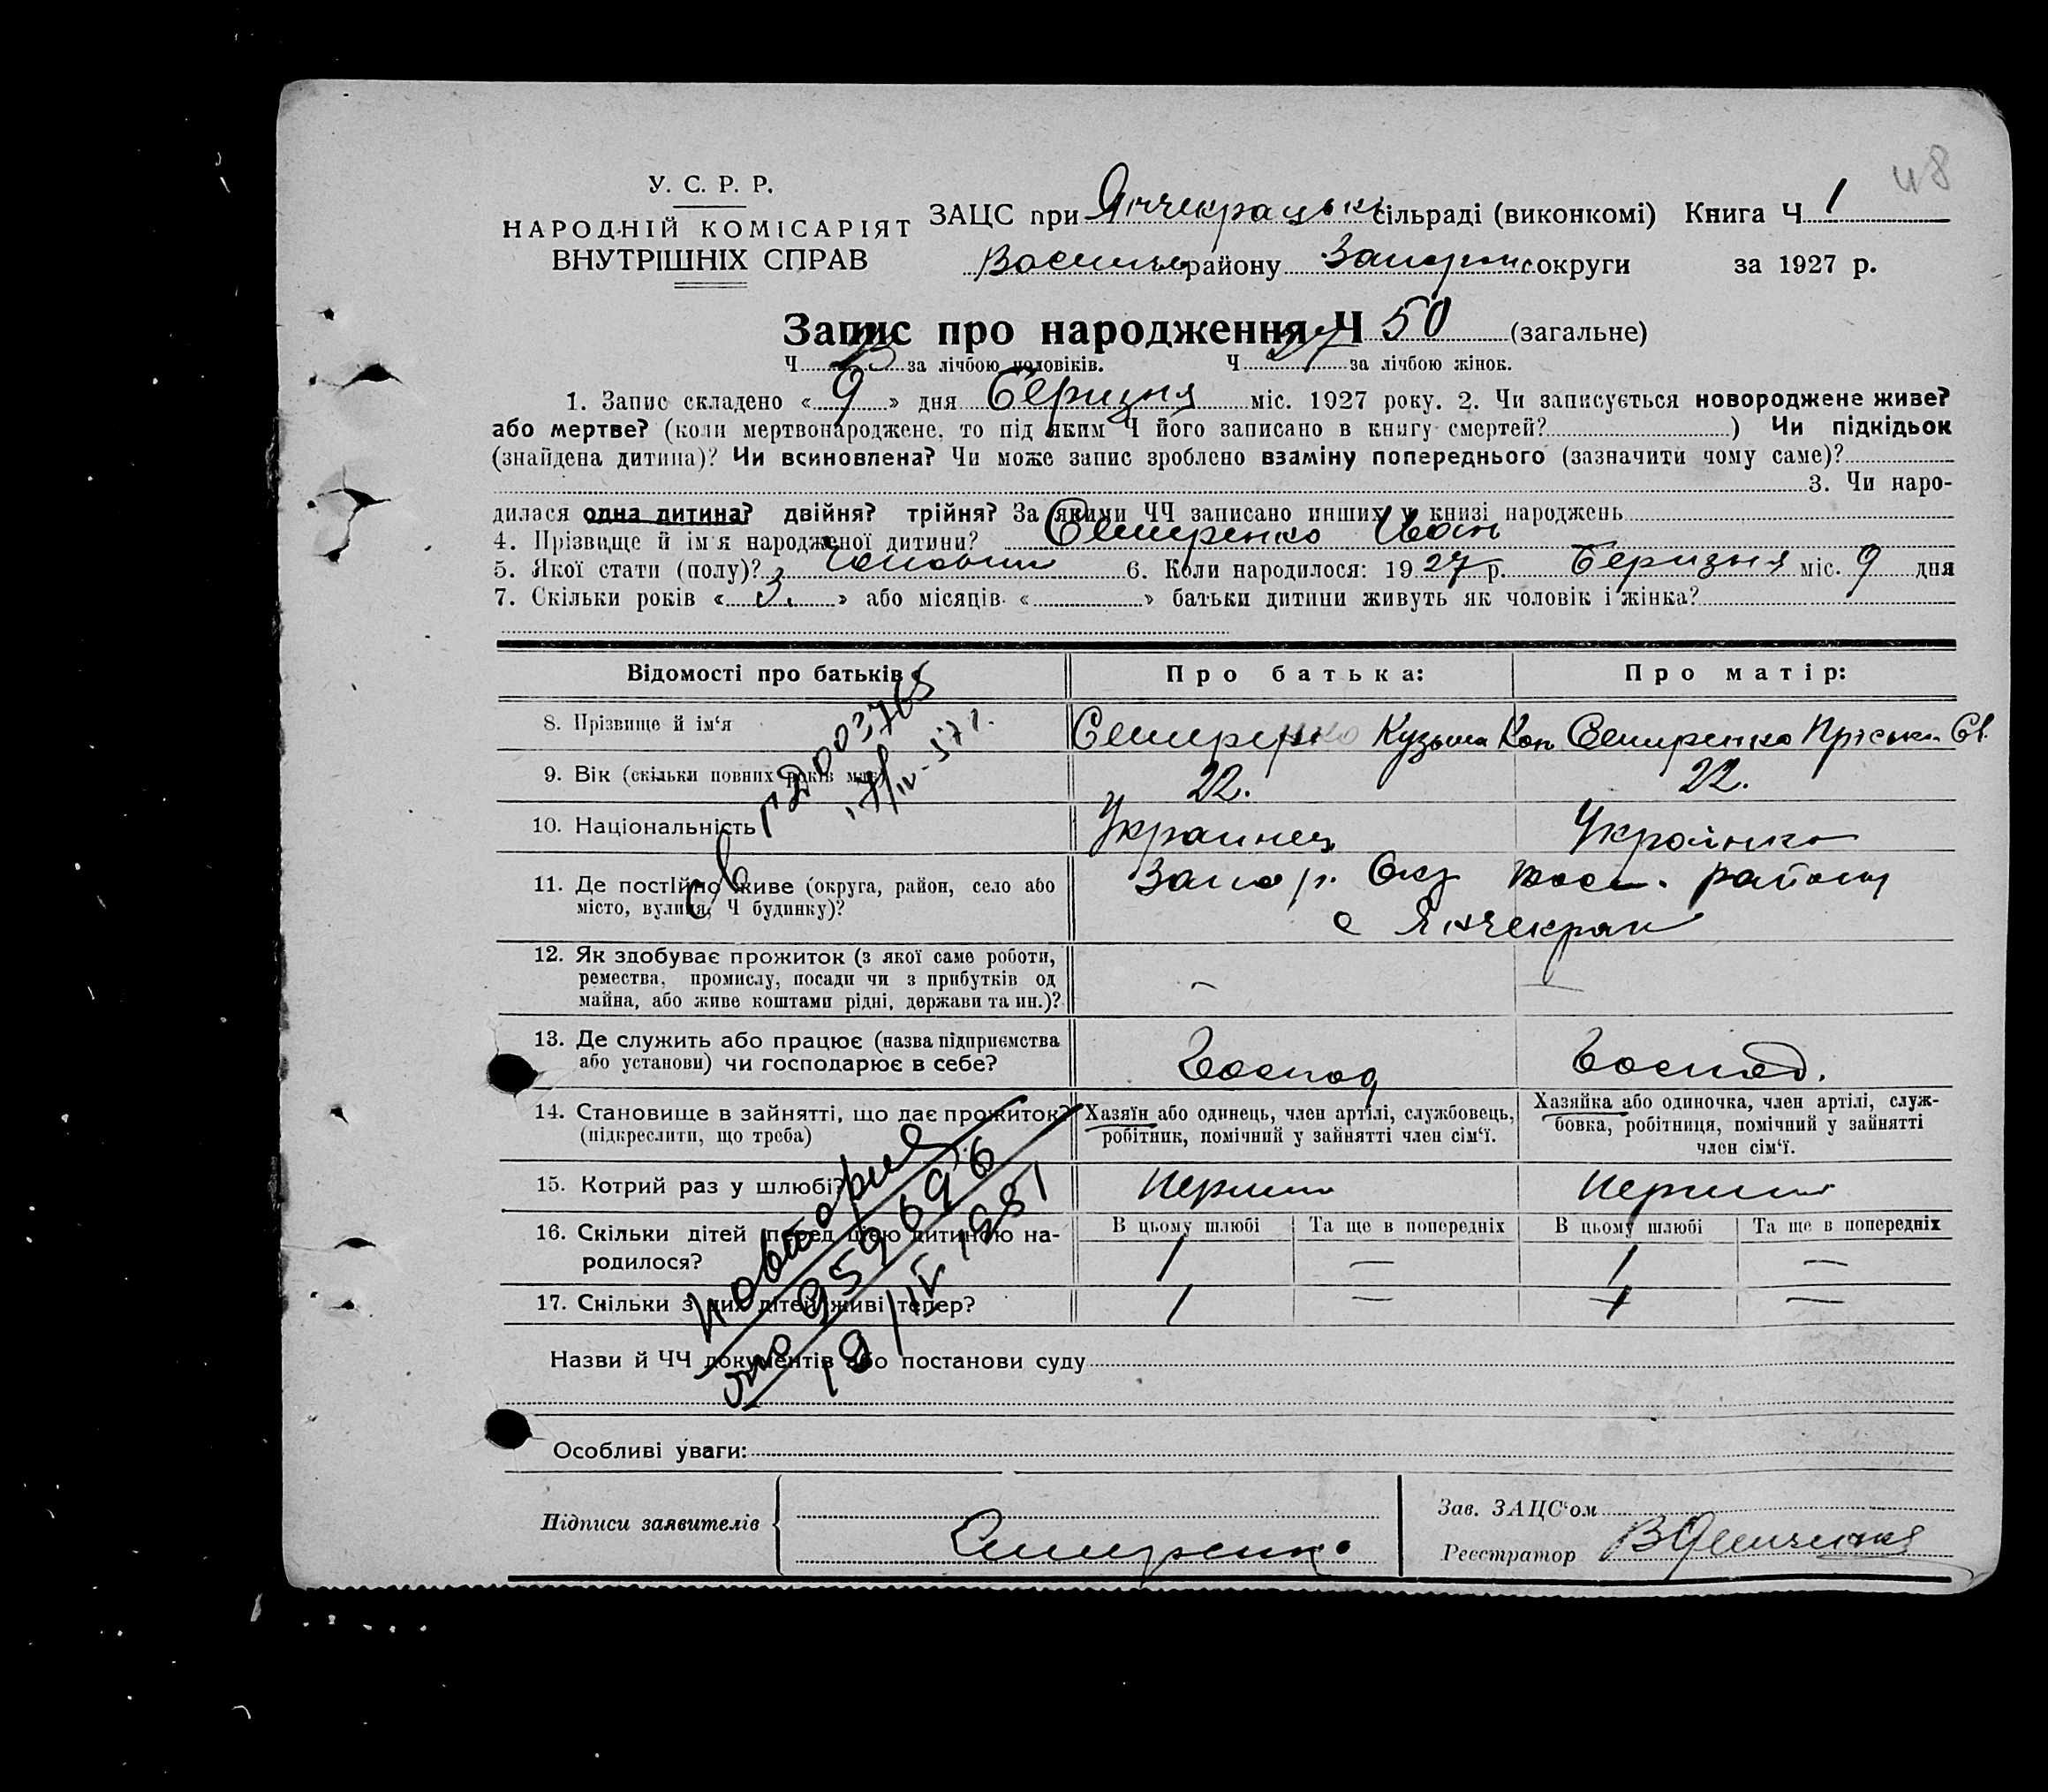 48
У. С. Р. Р.
НАРОДНІЙ КОМІСАРІЯТ
ВНУТРІШНІХ СПРАВ
ЗАЦС при Янчекрацькі сільраді (виконкомі) Книга Ч 1
району Запоріж округи за 1927 р.
Запис про народження Ч 50 (загальне)
Ч 23 за лічбою чоловіків. Ч 27 за лічбою жінок.
1. Запис складено « 9 » дня Беризня міс. 1927 року. 2. Чи записується новороджене живе?
або мертве? (коли мертвонароджене, то під яким Ч його записано в книгу смертей? ) Чи підкідьок
(знайдена дитина)? Чи всиновлена? Чи може запис зроблено взаміну попереднього (зазначити чому саме)?
3. Чи наро-
дилася одна дитина? двійня? трійня? За якими ЧЧ записано инших у книзі народжень
4. Прізвище й ім'я народженої дитини? Семиренко Иван
5. Якої стати (полу)? 6. Коли народилося: 1927 р. Беризня міс. 9 дня
7. Скільки років « 3. » або місяців « » батьки дитини живуть як чоловік і жінка?
Відомості про батьків Про батька: Про матір:
8. Прізвище й ім'я Семиренко Кузьма Кон Семиренко Пріська Єв.
9. Вік (скільки повних років має) 22. 22.
10. Національність Украинец Українка
11. Де постійно живе (округа, район, село або Запор. Окр Вас. району
місто, вулиця, Ч будинку)? с Янчекрак
12. Як здобуває прожиток (з якої саме роботи,
ремества, промислу, посади чи з прибутків од
майна, або живе коштами рідні, держави та ин.)? – –
13. Де служить або працює (назва підприємства
або установи) чи господарює в себе? Господ Господ.
14. Становище в зайнятті, що дає прожиток? Хазяїн або одинець, член артілі, службовець, Хазяйка або одиночка, член артілі, служ-
(підкреслити, що треба) робітник, помічний у зайнятті член сім'ї. бовка, робітниця, помічний у зайнятті
член сім'ї.
15. Котрий раз у шлюбі? перший перший
16. Скільки дітей перед цією дитиною на- В цьому шлюбі Та ще в попередніх В цьому шлюбі Та ще в попередніх
родилося? 1 — 1 —
17. Скільки з них дітей живі тепер? 1 — 1 —
повторне
959696
19/IV 1981
Назви й ЧЧ документів або постанови суду
Особливі уваги:
Підписи заявителів Семиренко
Зав. ЗАЦС'ом
Реєстратор